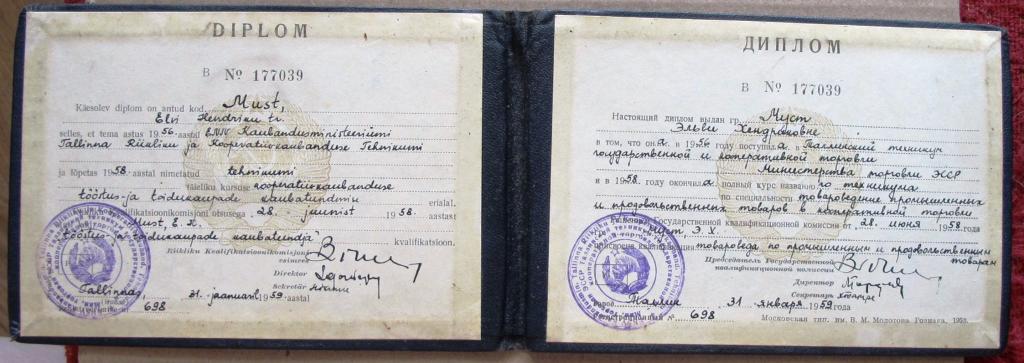 DIPLOM
В № 177039
Käesolev diplom on antud kod. Must,
Elvi Hendriku tr.
selles, et tema astus 1956 aastal ENSV Kaubandusministeeriumi
Tallinna Riikliku ja Kooperatiivkaubanduse Tehnikumi
ja lõpetas 1958 aastal nimetatud tehnikumi
täieliku kursuse kooperatiivkaubanduse
tööstus- ja toidukaupade kaubatundmise erialal.
kvalifikatsioonikomisjoni otsusega 28. juunist 1958. aastast
Must, E. H.
"Tööstus- ja toidukaupade kaubatundja" kvalifikatsioon.
Riikliku Kvalifikatsioonikomisjoni
esimees
Direktor
Sekretär
Tallinnas, 31. jaanuaril 1959 aastal
698
ДИПЛОМ
В № 177039
Настоящий диплом выдан гр. Муст
Эльви Хендриковне
в том, что она в 1956 году поступила в Таллинский техникум
государственной и кооперативной торговли
Министерства торговли ЭССР
и в 1958 году окончила полный курс названного техникума
по специальности товароведение промышленных
и продовольственных товаров в кооперативной торговле
Решением Государственной квалификационной комиссии от 28 июня 1958 года
Муст Э. Х.
присвоена квалификация товароведа по промышленным и продовольственным
товарам
Председатель Государственной
квалификационной комиссии
Директор
Секретарь
город Таллин 31 января 1959 года
Регистрационный № 698
Московская тип. им. В. М. Молотова Гознака, 1953.